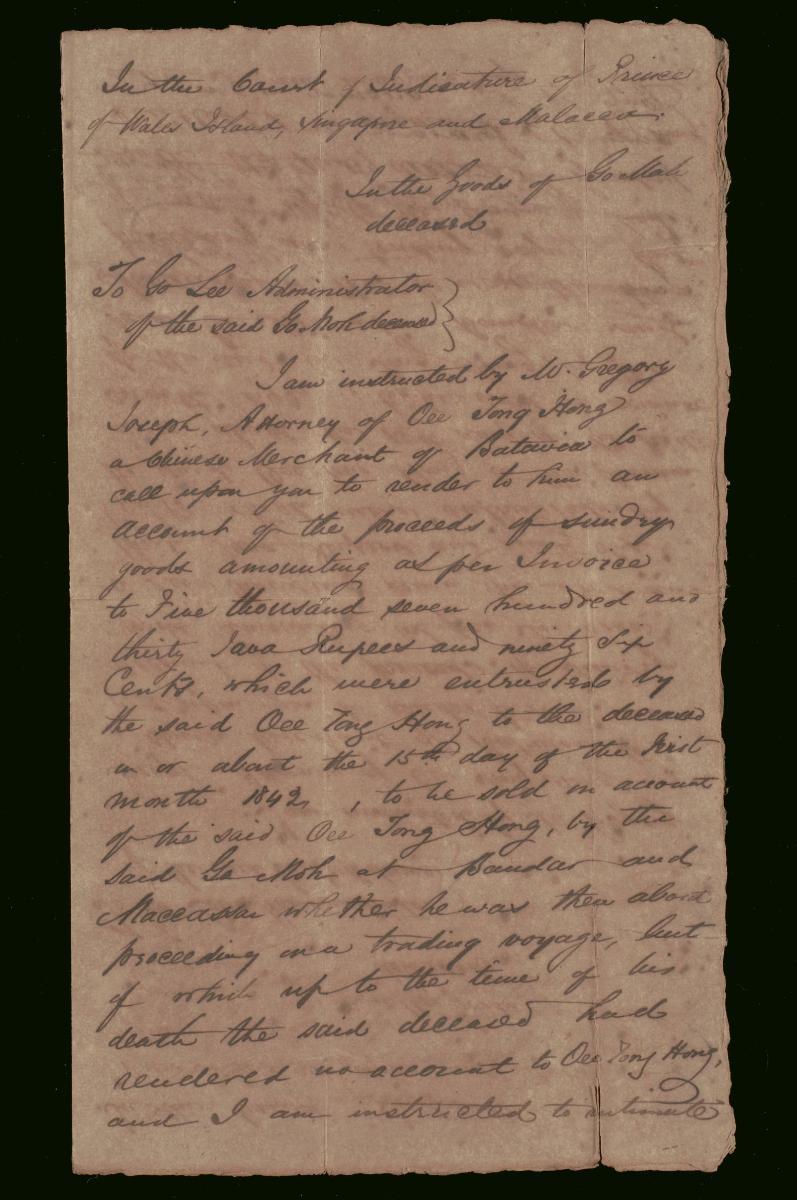 In the Court of Judicature of Prince
of Wales Island, Singapore and Malacca.
In the Goods of Go Moh
deceased
To Go Lee Administrator
of the said Go Moh deceased
I am instructed by Mr. Gregory
Joseph, Attorney of Oee Tong Hong
a Chinese Merchant of Batavia to
call upon you to render to him an
account of the proceeds of sundry
goods amounting as per Invoice
to Five thousand seven hundred and
thirty Java Rupees and ninety Six
Cents, which were entrusted by
the said Oee Tong Hong to the deceased
in or about the 15th day of the First
month 1842, to be sold on account
of the said Oee Tong Hong, by the
said Go Moh at Bandar and
Maccassar whether he was then about
proceeding on a trading voyage, but
of which up to the time of his
death the said deceased had
rendered no account to Oee Tong Hong,
and I am instructed to intimate